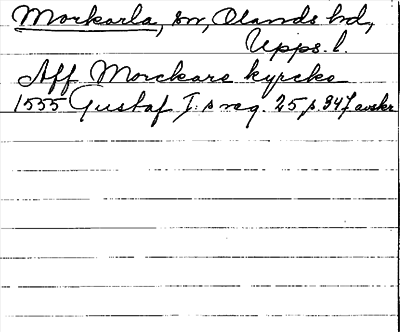 Morkarla, sn, Olands hd,
Upps. l.
Aff Morckare kyrcko
1555 Gustaf I:s reg. 25 p. 347 avskr